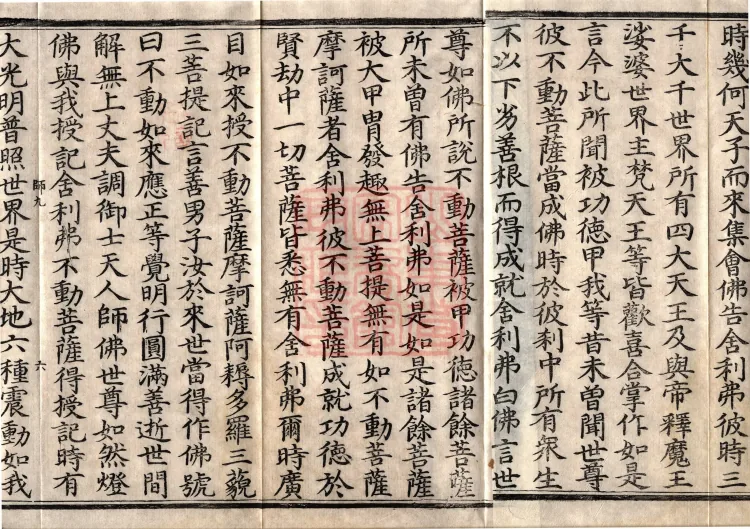 時幾何天子而來集會佛告舍利弗彼時三
千大千世界所有四大天王及與帝釋魔王
娑婆世界主梵天王等皆歡喜合掌作如是
言今此所聞被功德甲我等昔未曾聞世尊
彼不動菩薩當成佛時於彼刹中所有衆生
不以下劣善根而得成就舍利弗白佛言世
尊如佛所說不動菩薩被甲功德諸餘菩薩
所未曾有佛告舍利弗如是如是諸餘菩薩
被大甲冑發趣無上菩提無有如不動菩薩
摩訶薩者舍利弗彼不動菩薩成就功德於
賢劫中一切菩薩皆悉無有舍利弗爾時廣
目如來授不動菩薩摩訶薩阿耨多羅三藐
三菩提記言善男子汝於來世當得作佛號
曰不動如來應正等覺明行圓滿善逝世間
解無上丈夫調御士天人師佛世尊如然燈
佛與我授記舍利弗不動菩薩得授記時有
師九 六
大光明普照世界是時大地六種震動如我